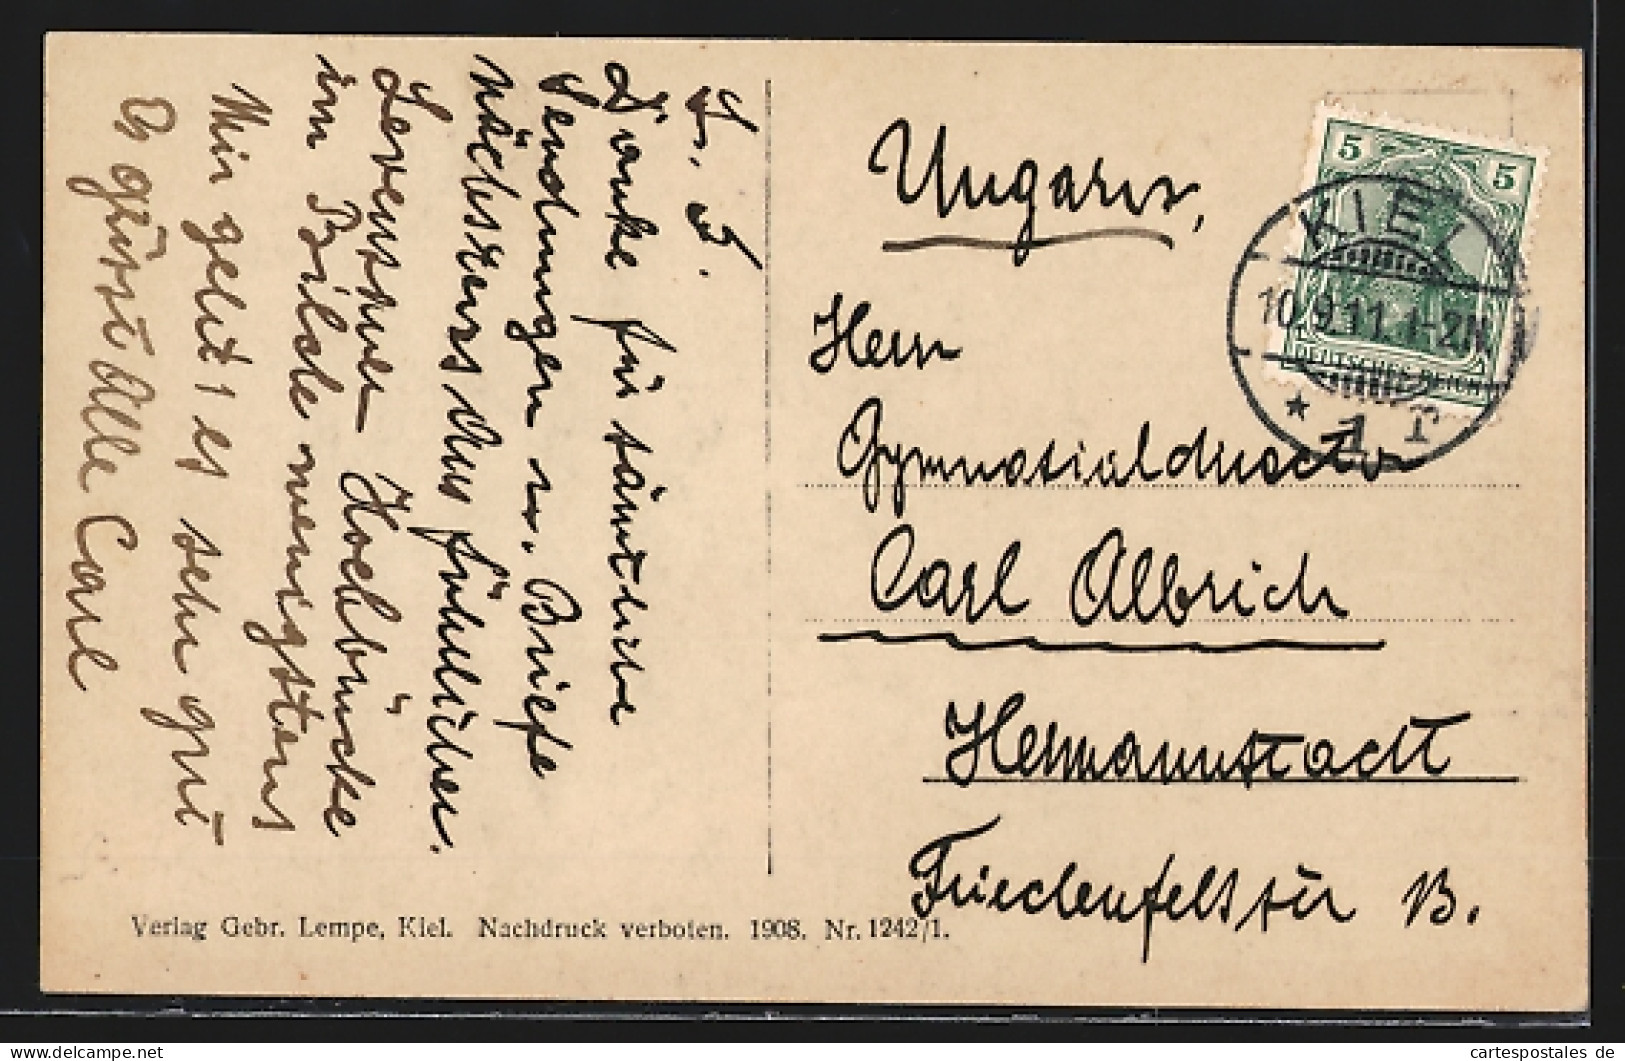 L. S.
Danke für sämtliche
Sendungen u. Briefe
nächstens ausführlicher.
Levensauer Hochbrücke
im Bilde wenigstens
Mir geht es sehr gut
grüsst Alle Carl
Ungarn,
Herrn
Gymnasialdirector
Carl Albrich
Hermannstadt
Friedenfelsstr 13.
5 5
DEUTSCHES REICH
KIEL
10.9.11.1-2N
* 1 r
Verlag Gebr. Lempe, Kiel. Nachdruck verboten. 1908. Nr. 1242/1.
cartespostales de